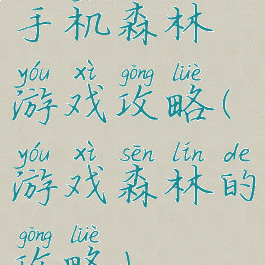 手机森林
yóu xì gōng lüè
游戏攻略(
yóu xì sēn lín de
游戏森林的
gōng lüè
攻略)